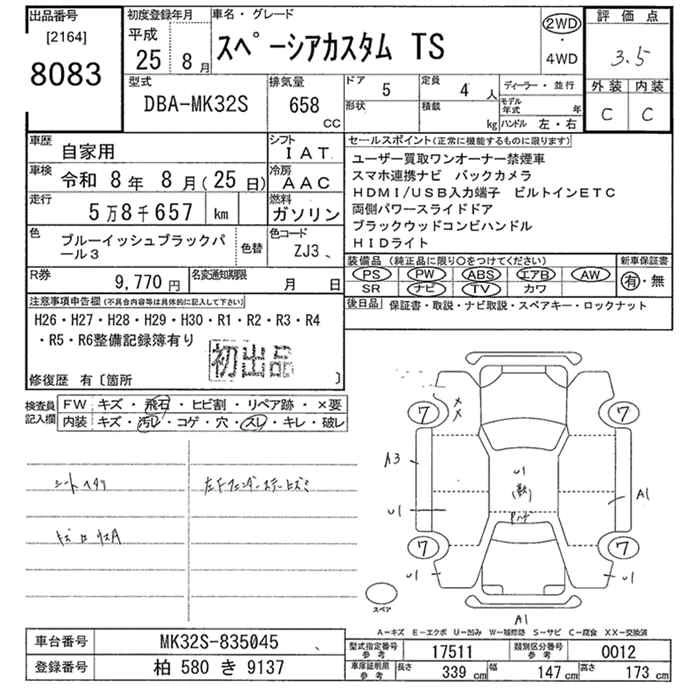 出品番号
[2164]
8083
初度登録年月
平成
25 8月
車名・グレード
スペーシアカスタム TS
2WD
・
4WD
評価点
3.5
外装 内装
C C
型式
DBA-MK32S
排気量
658
CC
ドア
5
定員
4 人
形状
積載
kg
ディーラー・並行
モデル年式 年
ハンドル 左・右
車歴
自家用
シフト
IAT
車検
令和 8年 8月(25日)
冷房
AAC
走行
5万8千657 km
燃料
ガソリン
色
ブルーイッシュブラックパール3
色替
色コード
ZJ3
R券
9,770 円
名変通知期限
月 日
セールスポイント(正常に機能するものに限ります)
ユーザー買取ワンオーナー禁煙車
スマホ連携ナビ バックカメラ
HDMI/USB入力端子 ビルトインETC
両側パワースライドドア
ブラックウッドコンビハンドル
HIDライト
装備品 (純正品に限り○をつけてください)
新車保証書
PS PW ABS エアB AW
SR ナビ TV カワ
有・無
後日品
保証書・取説・ナビ取説・スペアキー・ロックナット
注意事項申告欄(不具合内容等は具体的に記入して下さい)
H26・H27・H28・H29・H30・R1・R2・R3・R4
・R5・R6整備記録簿有り
初出品
修復歴 有〔箇所 〕
検査員記入欄
FW キズ・飛石・ヒビ割・リペア跡・×要
内装 キズ・汚レ・コゲ・穴・スレ・キレ・破レ
シートヘタリ
7
7
7
7
A3
U1
U1
A1
U1
U1
A1
スペア
A－キズ E－エクボ U－凹み W－補修跡 S－サビ C－腐食 XX－交換済
車台番号
MK32S-835045
登録番号
柏 580 き 9137
型式指定番号
参考
17511
類別区分番号
参考
0012
車庫証明用
参考
長さ
339 cm
幅
147 cm
高さ
173 cm